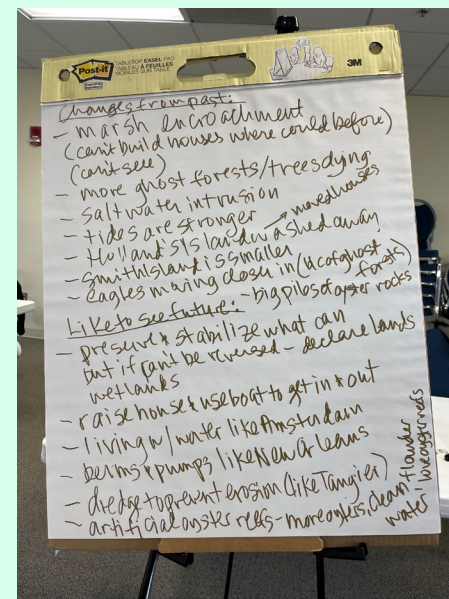 Post-it
TABLETOP EASEL PAD
TABLEAU À FEUILLES
MOBILES SUR TABLE
3M
Changes from past:
- marsh encroachment
(can't build houses where could before)
(can't see)
- more ghost forests/trees dying
- saltwater intrusion
- tides are stronger
- Holland's Island washed away → moved houses
- Smith Island is smaller
- eagles moving closer in (bc of ghost forests)
Like to see future: - big piles of oyster rocks
- preserve & stabilize what can
but if can't be reversed - declare lands
wetlands
- raise house & use boat to get in & out
- living w/ water like Amsterdam
- berms & pumps like New Orleans
- dredge to prevent erosion (like Tangier)
- artificial oyster reefs - more oysters, clean
water, flounder